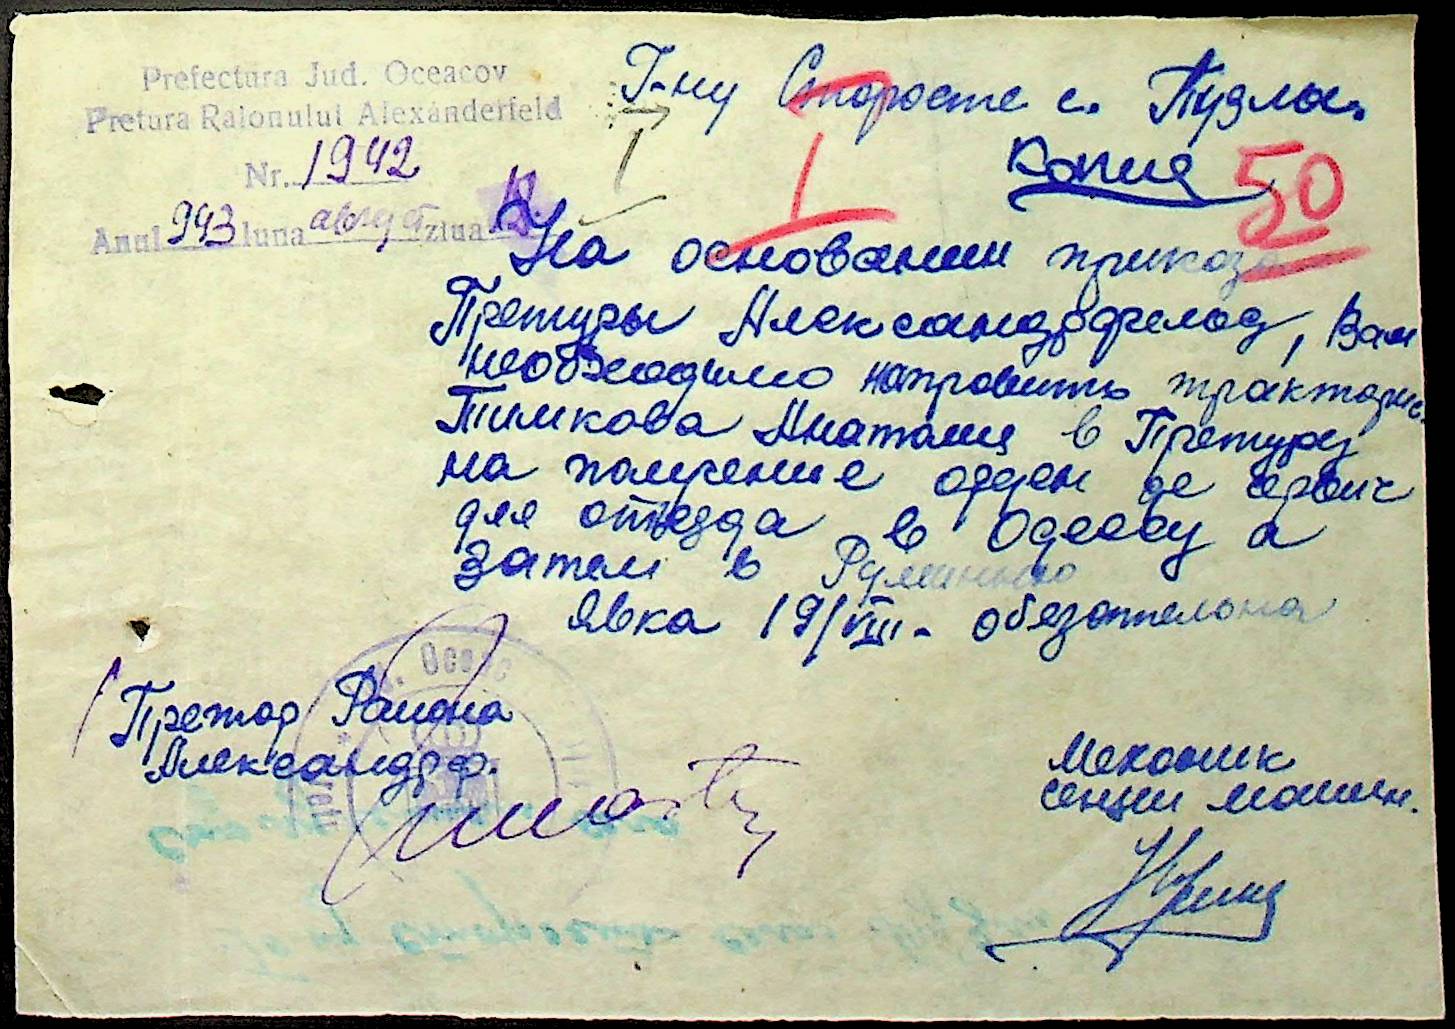 Prefectura Jud. Oceacov
Pretura Raionului Alexanderfeld
Nr. 1942
Anul 943 luna август ziua 18.
Г-ну Старосте с. Тузлы.
Копия
50
На основании приказа
Претуры Александрфельд, Вам
необходимо направить тракторис.
Тимкова Анатолия в Претуру
на получение орден де сервич
для отъезда в Одессу а
затем в Румынию
Явка 19/VIII - обязательна
Претор Района
Александрф.
Механик
секции машин.